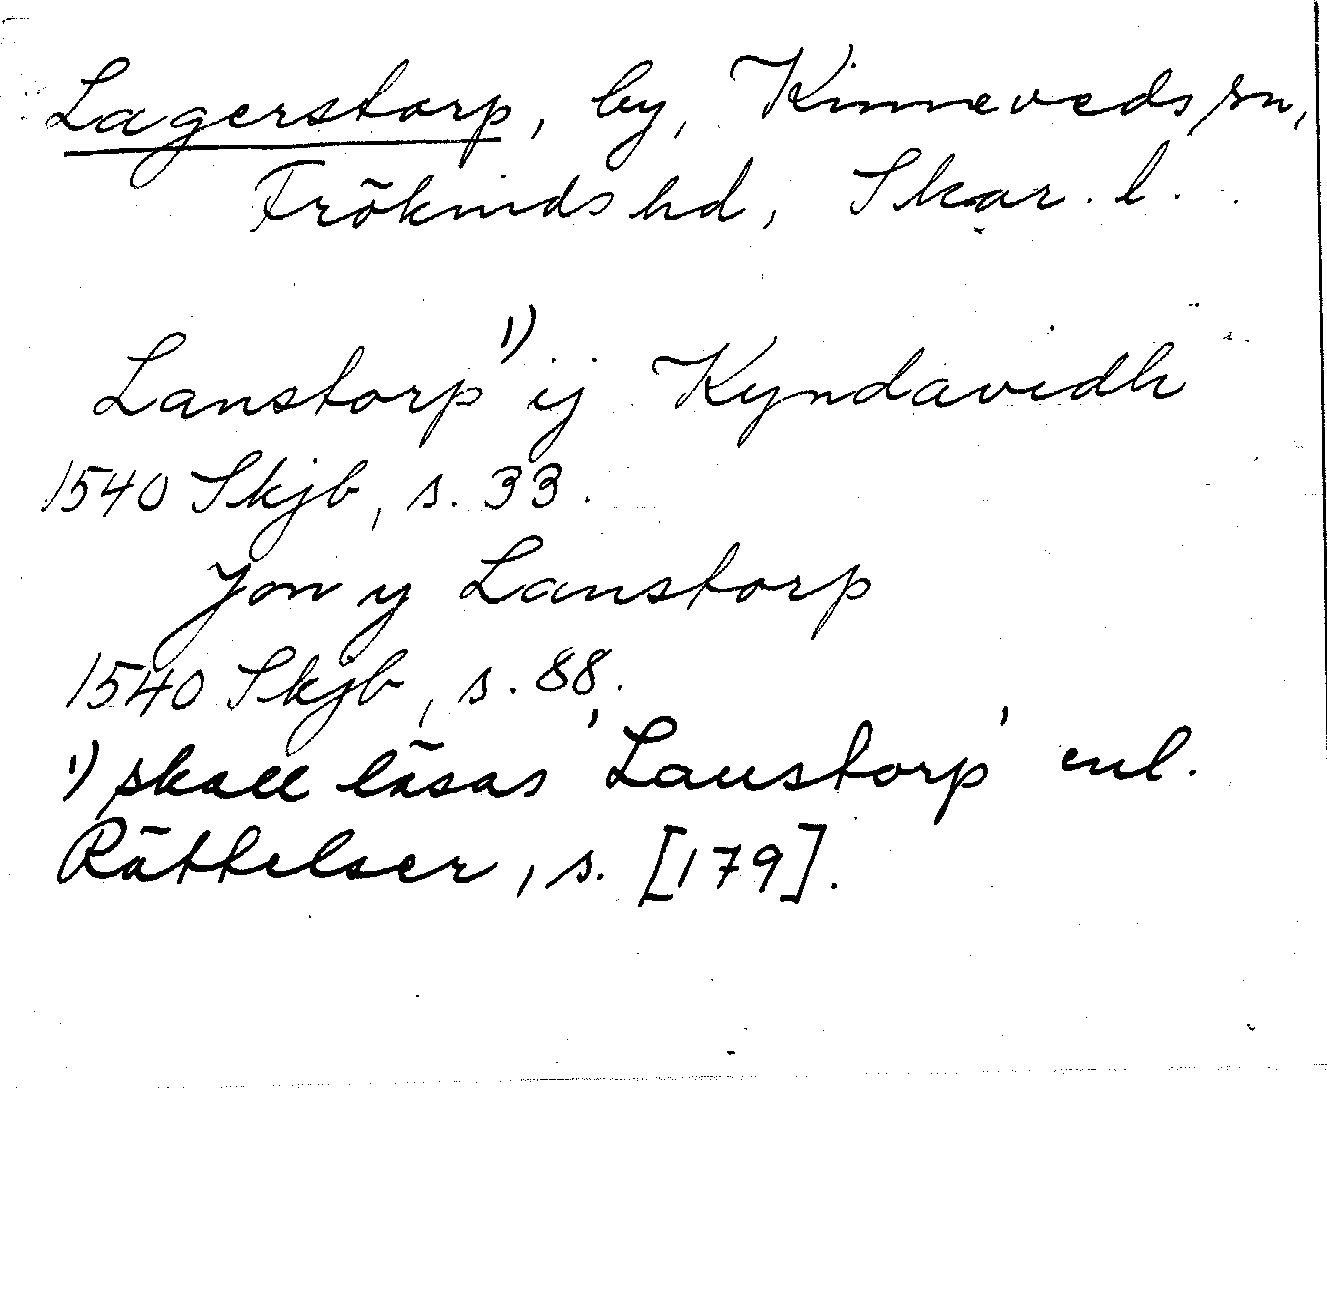 Lagerstorp, by, Kinneveds sn,
Frökinds hd, Skar. l.
Lanstorp 1) ij Kyndavidh
1540 Skjb, s. 33.
Jon y Lanstorp
1540 Skjb, s. 88.
1) skall läsas 'Laustorp' enl.
Rättelser, s. [179].